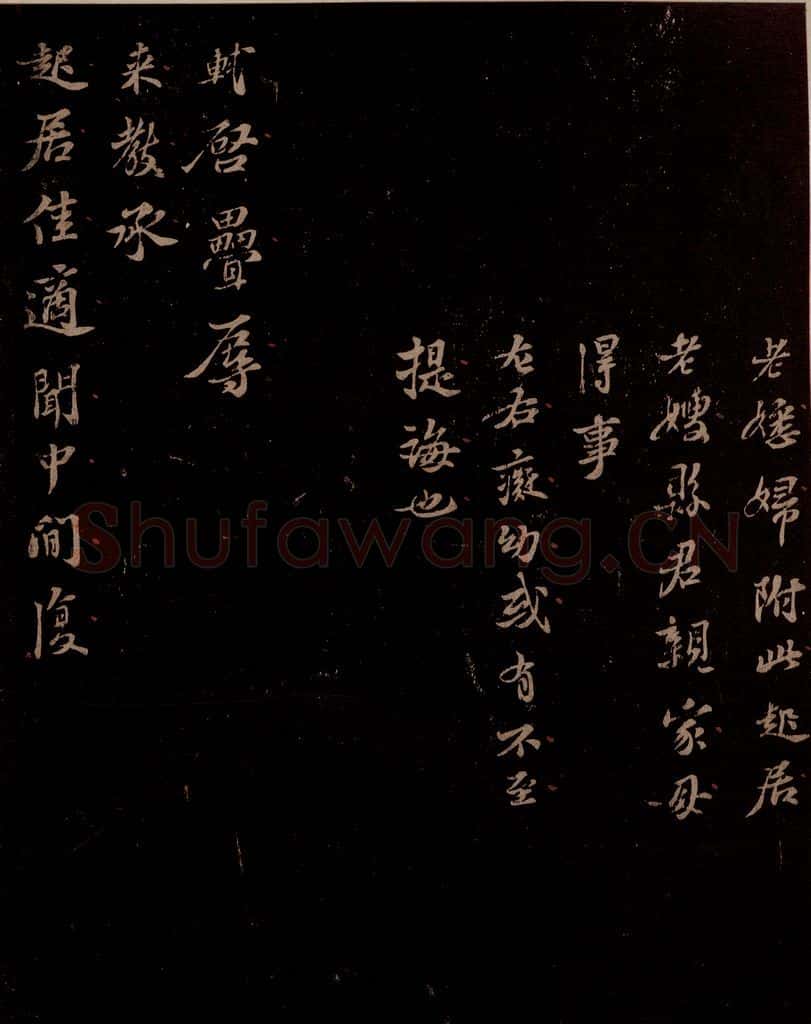 老嬸婦附此起居
老嫂縣君親家母
得事
左右癡幼或有不至
提誨也
軾啓疊辱
来教承
起居佳適聞中間復
Shufawang.CN